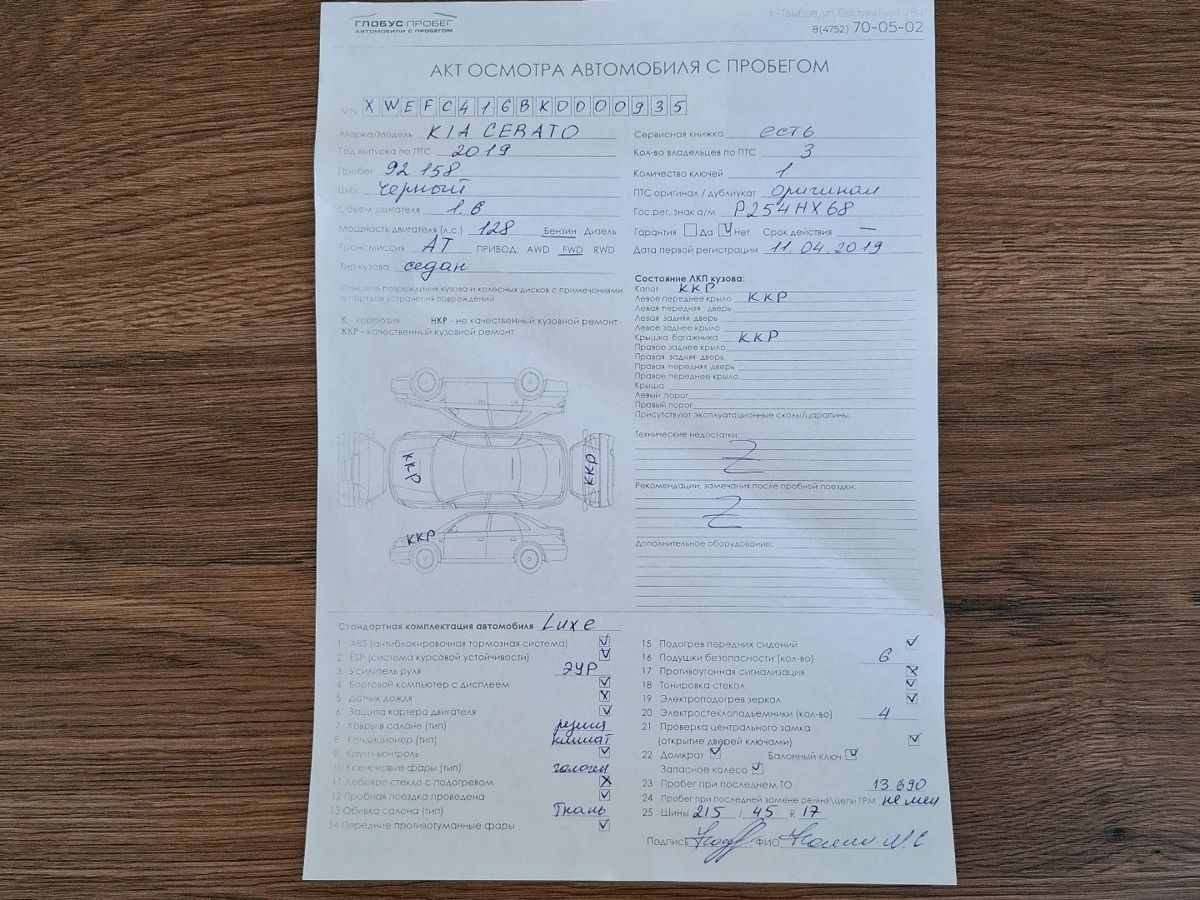 ГЛОБУС ПРОБЕГ
АВТОМОБИЛИ С ПРОБЕГОМ
г. Тамбов, ул. Бастионная,
8(4752) 70-05-02
АКТ ОСМОТРА АВТОМОБИЛЯ С ПРОБЕГОМ
VIN XWEFC416BK0000935
Марка/Модель KIA CERATO
Год выпуска по ПТС 2019
Пробег 92 158
Цвет черный
Объем двигателя 1.6
Мощность двигателя (л.с.) 128 Бензин Дизель
Трансмиссия АТ ПРИВОД: AWD FWD RWD
Тип кузова седан
Опишите повреждения кузова и колесных дисков с примечаниями
о порядке устранения повреждений
К - коррозия НКР - не качественный кузовной ремонт
ККР - качественный кузовной ремонт
ККР
ККР
ККР
Сервисная книжка есть
Кол-во владельцев по ПТС 3
Количество ключей 1
ПТС оригинал / дубликат оригинал
Гос.рег. знак а/м Р254НХ68
Гарантия Да Нет Срок действия —
Дата первой регистрации 11.04.2019
Состояние ЛКП кузова:
Капот ККР
Левое переднее крыло ККР
Левая передняя дверь
Левая задняя дверь
Левое заднее крыло
Крышка багажника ККР
Правое заднее крыло
Правая задняя дверь
Правая передняя дверь
Правое переднее крыло
Крыша
Левый порог
Правый порог
Присутствуют эксплуатационные сколы/царапины.
Технические недостатки:
Z
Рекомендации, замечания после пробной поездки:
Z
Дополнительное оборудование:
Стандартная комплектация автомобиля Luxe
1 ABS (антиблокировочная тормозная система)
2 ESP (система курсовой устойчивости)
3 Усилитель руля ЭУР
4 Бортовой компьютер с дисплеем
5 Датчик дождя
6 Защита картера двигателя
7 Ковры в салоне (тип) резина
8 Кондиционер (тип) климат
9 Круиз-контроль
10 Ксеноновые фары (тип) галоген
11 Лобовое стекло с подогревом
12 Пробная поездка проведена
13 Обивка салона (тип) Ткань
14 Передние противотуманные фары
15 Подогрев передних сидений
16 Подушки безопасности (кол-во) 6
17 Противоугонная сигнализация
18 Тонировка стекол
19 Электроподогрев зеркал
20 Электростеклоподъемники (кол-во) 4
21 Проверка центрального замка
(открытие дверей ключами)
22 Домкрат Балонный ключ
Запасное колесо
23 Пробег при последнем ТО 13.690
24 Пробег при последней замене ремня\цепи ГРМ не мен
25 Шины 215 / 45 R 17
Подпись ФИО